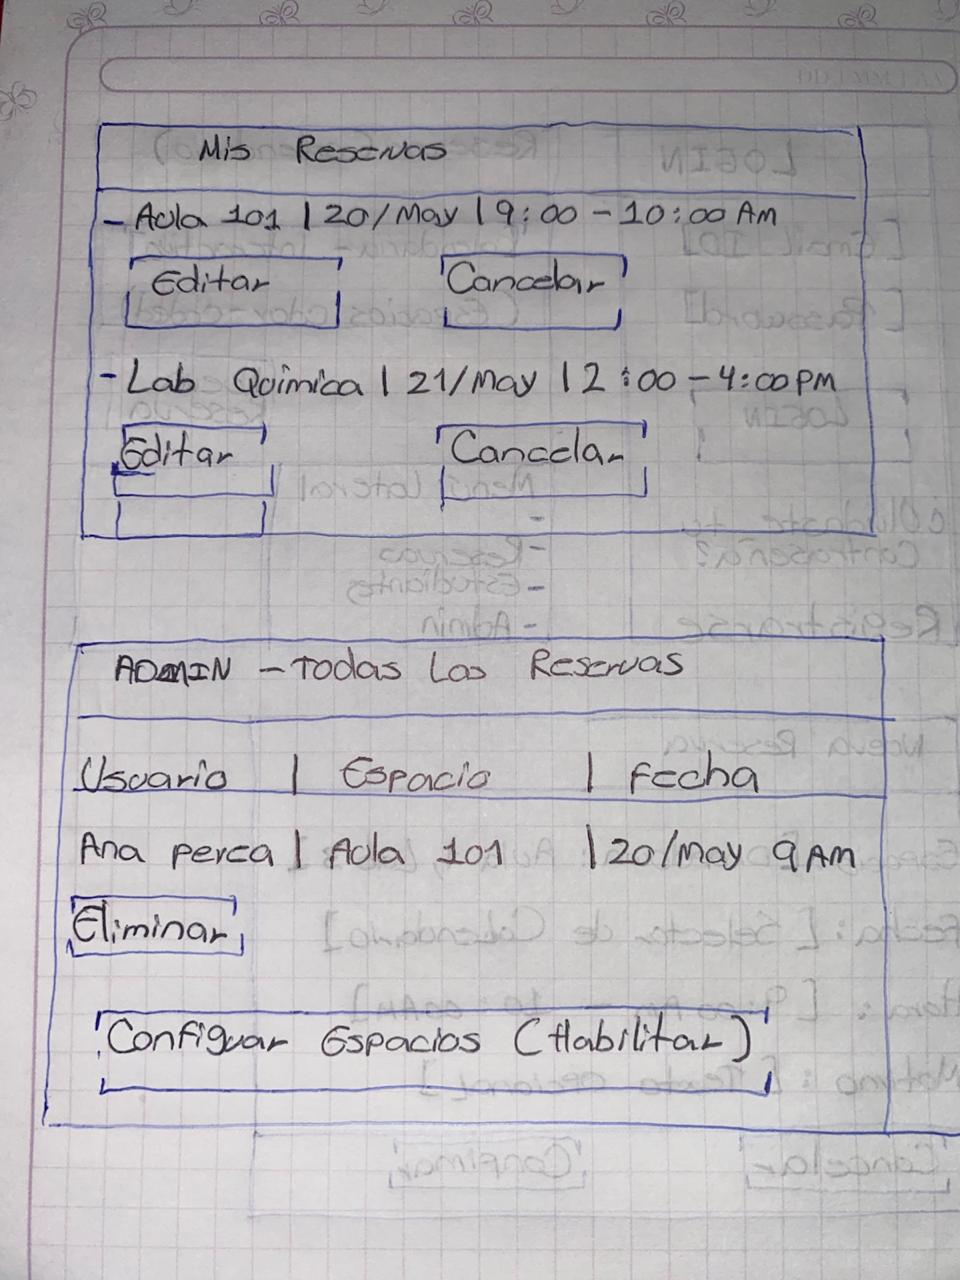 Mis Reservas
- Aula 101 | 20/May | 9:00 - 10:00 Am
Editar Cancelar
- Lab Química | 21/May | 2:00 - 4:00 PM
Editar Cancelar
ADMIN - Todas Las Reservas
Usuario | Espacio | Fecha
Ana perea | Aula 101 | 20/May 9 AM
Eliminar
Configuar Espacios (Habilitar)